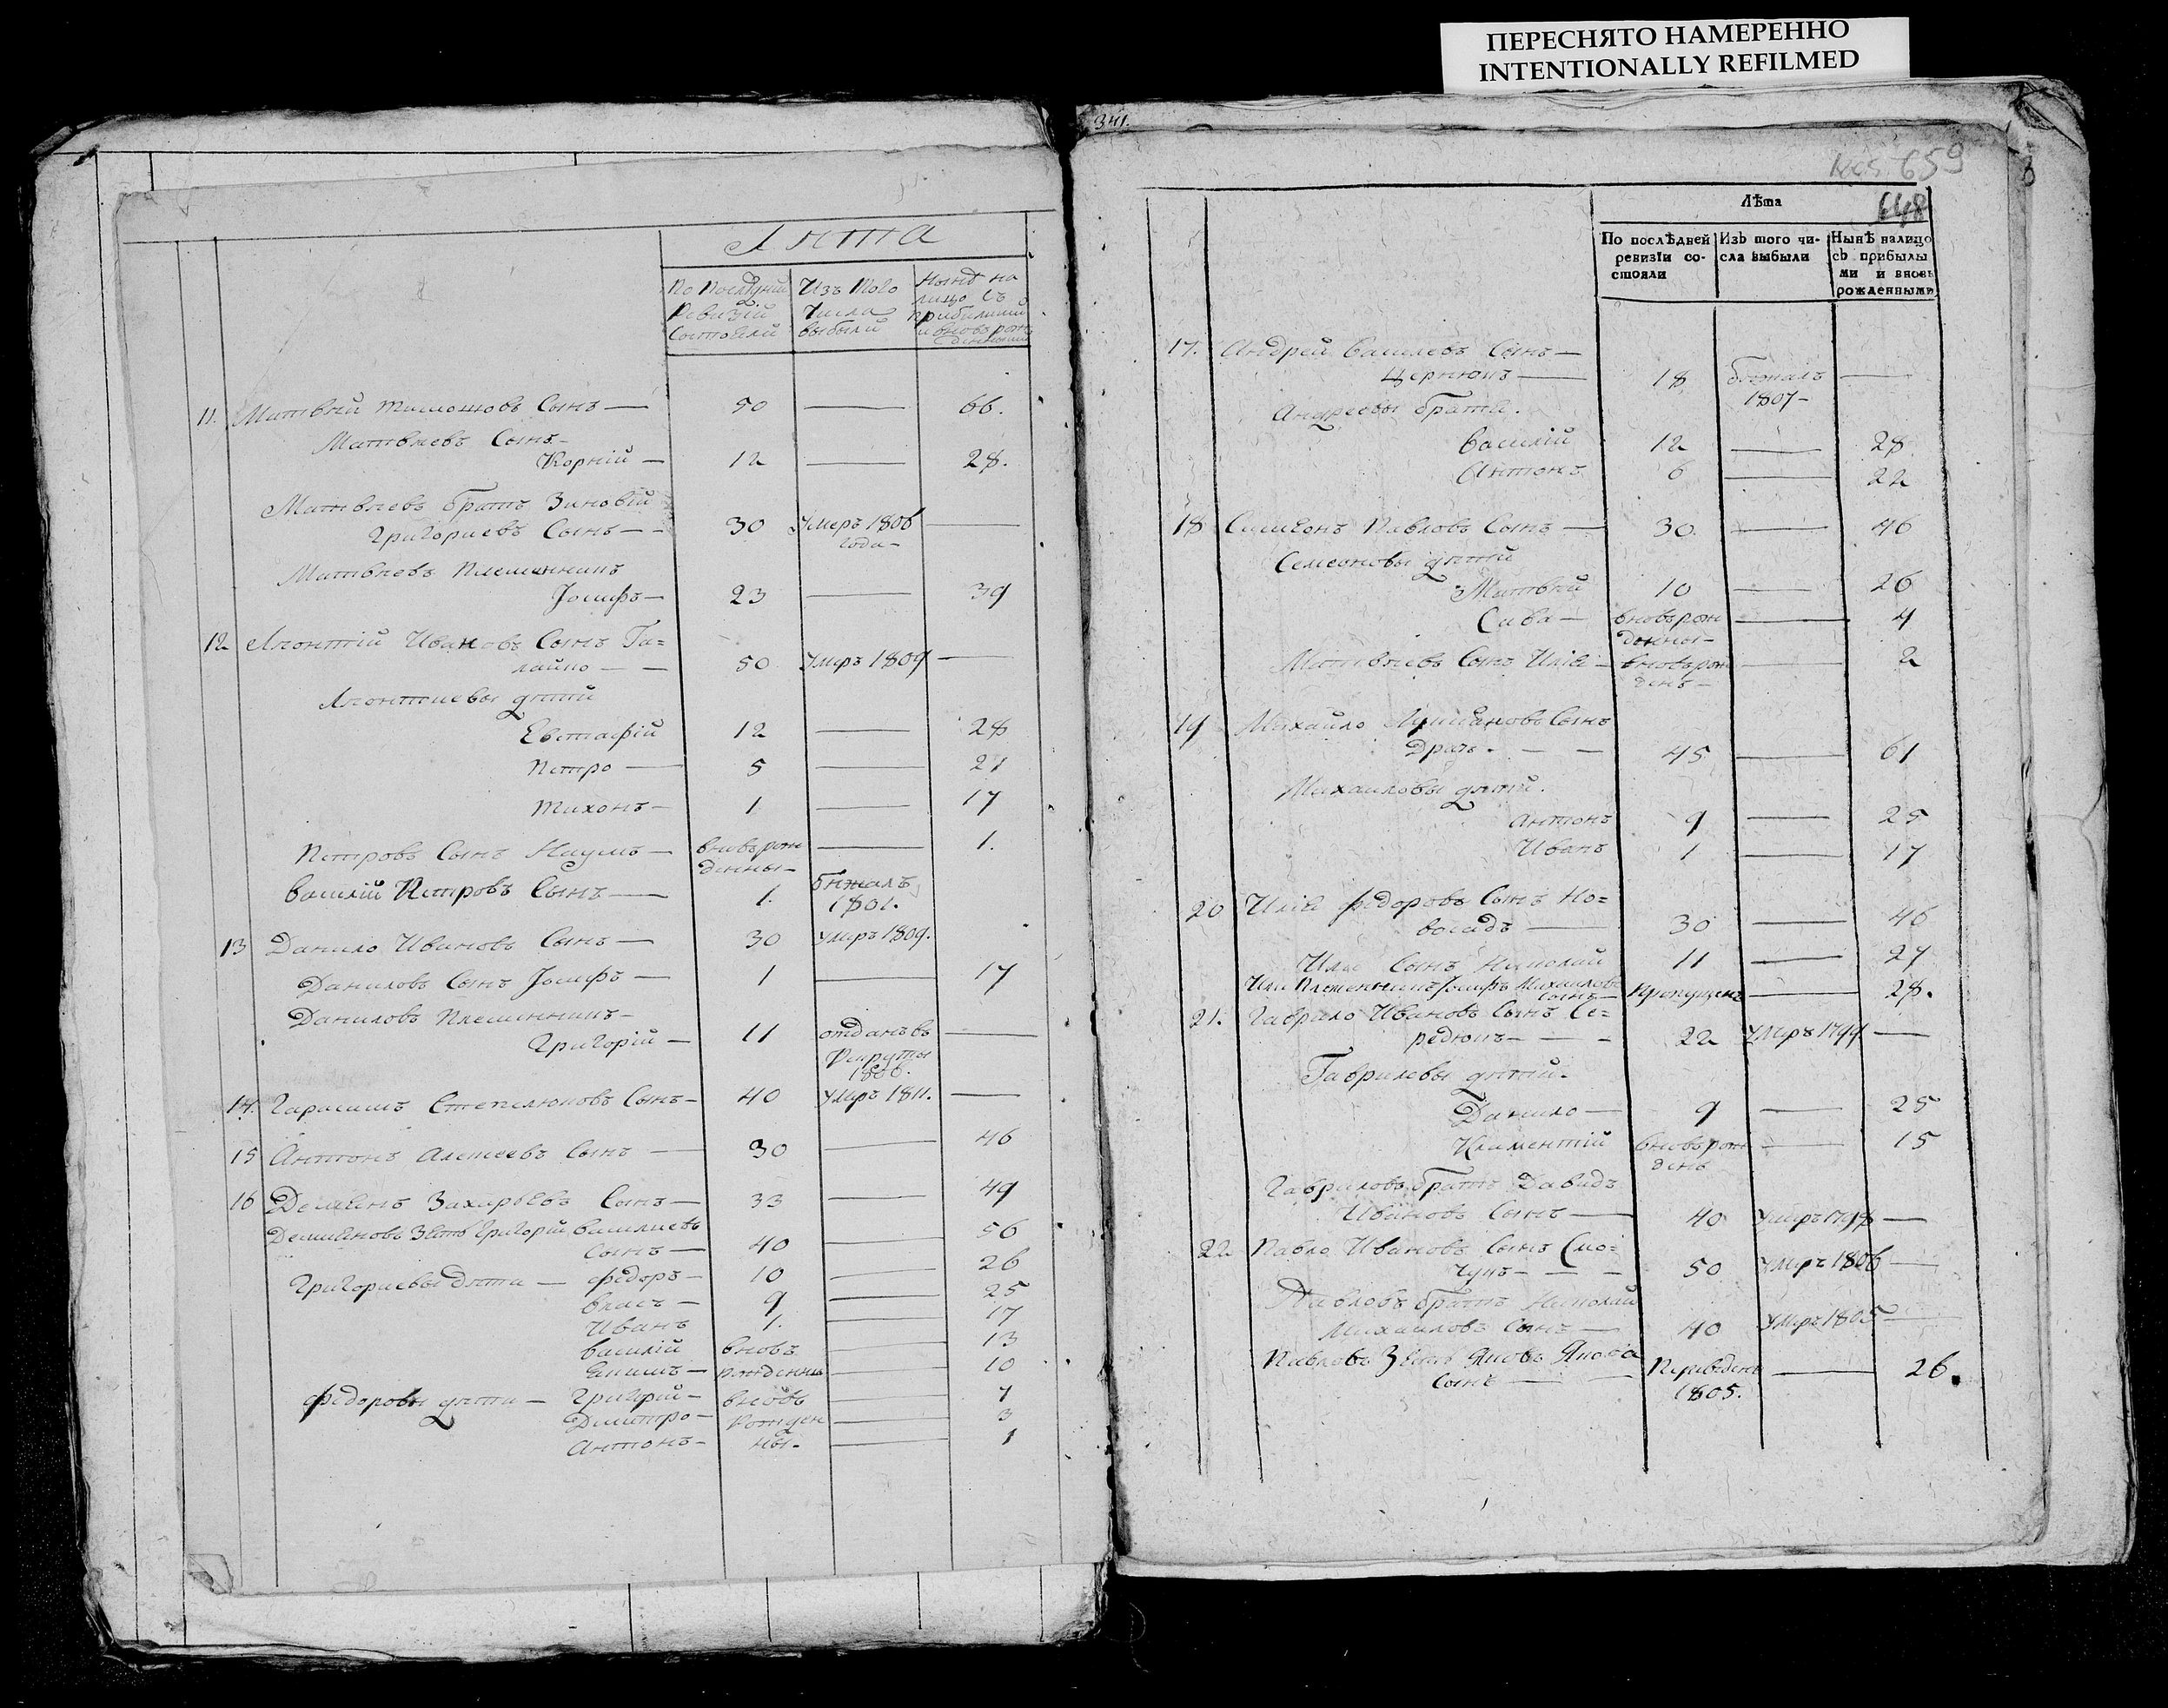 ПЕРЕСНЯТО НАМЕРЕННО
INTENTIONALLY REFILMED
Лѣта
По Послѣдней Ревизіи Состояли
Изъ того Числа выбыли
Нынѣ на лицо съ
11. Матвѣй Тимошовъ Сынъ — 50 — 66.
Матвѣевъ Сынъ
Корнѣй — 12 — 28.
Матвѣевъ братъ Зиновій
Григориевъ Сынъ — 30 Умеръ 1806 года —
Матвѣевъ Племенникъ
Іосифъ — 23 — 39
12 Леонтій Ивановъ Сынъ Га=
лайко — 50 Умръ 1809 —
Леонтиевы дѣтий
Евстафій 12 — 28
Петро — 5 — 21
Тихонъ — 1 — 17
Петровъ Сынъ Наумъ — вновърож денны — 1.
Василій Петровъ Сынъ — 1. бѣжалъ 1801.
13 Данило Ивановъ Сынъ — 30 умръ 1809.
Даниловъ Сынъ Іосифъ — 1 — 17
Даниловъ Племенникъ —
Григорій — 11 отданъ въ Рекруты 1806. —
14. Гарасимъ Сынъ — 40 умръ 1811. —
15 Антонъ Алексеевъ Сынъ — 30 — 46
16 Демянъ Захарьевъ Сынъ — 33 — 49
Демяновъ Зять Григорій Василиевъ
Сынъ — 40 — 56
Григориевы дѣти — Федоръ — 10 — 26
Власъ — 9 — 25
Иванъ 1. — 17
Василій вновь — 13
Екимъ — рожденны — 10
Федоровы дѣти — Григорій — вновь — 7
Дмитро — Рожден — 3
Антонъ — ны. — 1
341.
659
648
Лѣта
По послѣдней ревизіи состояли
Изъ того числа выбыли
Нынѣ налицо съ прибылыми и вновь рожденными
17. Андрей Василевъ Сынъ —
Чернюкъ — 18 бежалъ 1807 —
Андреевы братя.
Василій 12 — 28
Антонъ 6 — 22
18 Симеонъ Павловъ Сынъ — 30. — 46
Семеоновы дѣтий
Матвѣй 10 — 26
Сава — вновърож денны — 4
Матвѣевъ Сынъ Илія — вновърож денъ — 2
19 Михайло Сынъ
— — 45 — 61
Михаиловы дѣтий.
Антонъ 9 — 25
Иванъ 1 — 17
20 Илія Федоровъ Сынъ Но=
восадъ — 30 — 46
Илии Сынъ Николай 11 — 27
Или Племенникъ Іосифъ Михаиловъ Сынъ — Пропущенъ — 28.
21. Гаврило Ивановъ Сынъ Се=
редюкъ — — 22 Умръ 1799 —
Гавриловы дѣтий.
Данило — 9 — 25
Климентій вновърож денъ — 15
Гавриловъ братъ Давидъ
Ивановъ Сынъ — 40 Умръ 1798 —
22 Павло Ивановъ Сынъ — — 50 Умръ 1806 —
Павловъ братъ Николай
Михаиловъ Сынъ — 40 Умръ 1805 —
Павловъ Зять Яковъ Сынъ — Переведенъ 1805. — 26.